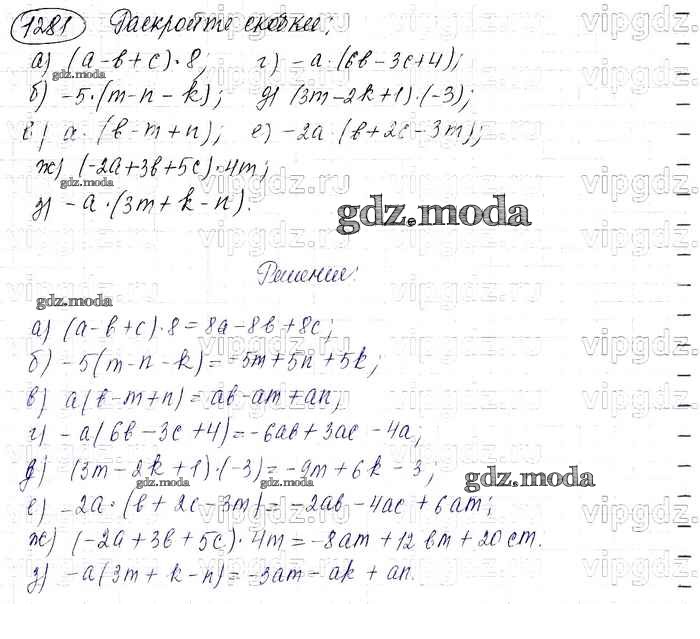 1281 Раскройте скобки:
а) (a-b+c)·8; г) -a·(6b-3c+4);
gdz.moda
б) -5·(m-n-k); д) (3m-2k+1)·(-3);
в) a·(b-m+n); е) -2a·(b+2c-3m);
ж) (-2a+3b+5c)·4m;
gdz.moda
з) -a·(3m+k-n).
gdz.moda
Решение:
gdz.moda
а) (a-b+c)·8=8a-8b+8c;
б) -5(m-n-k)=-5m+5n+5k;
в) a(b-m+n)=ab-am+an;
г) -a(6b-3c+4)=-6ab+3ac-4a;
д) (3m-2k+1)·(-3)=-9m+6k-3;
gdz.moda gdz.moda gdz.moda
е) -2a·(b+2c-3m)=-2ab-4ac+6am;
ж) (-2a+3b+5c)·4m=-8am+12bm+20cm.
з) -a(3m+k-n)=-3am-ak+an.
vipgdz.ru